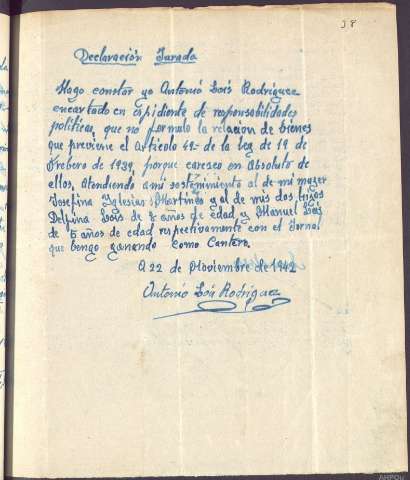 38
Declaración Jurada
Hago constar yo Antonio Lois Rodriguez
encartado en espidiente de responsabilidades
politicas, que no formulo la relacion de bienes
que previene el Articulo 49- de la ley de 19 de
Febrero de 1939, porque caresco en Absoluto de
ellos, Atendiendo a mi sostenimiento al de mi muger
Josefina Yglesias Martinez y al de mis dos hijos
Delfina Lois de años de edad y Manuel Lois
de 5 años de edad respectivamente con el Jornal
que bengo ganando como Cantero.
A 22 de Noviembre de 1942
Antonio Lois Rodriguez